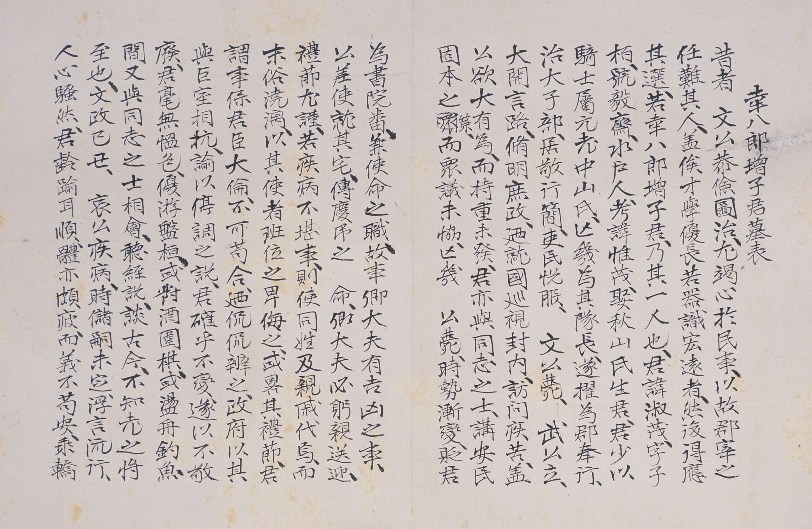 幸八郎增子君墓表
昔者　文公恭儉圖治尤竭心於民事以故郡宰之
任難其人盖俟才學優長若器識宏遠者然後得應
其選若幸八郎增子君乃其一人也君諱淑茂字子
柏號毅齋水戶人考諱惟茂娶秋山氏生君君少以
騎士屬元老中山氏亡幾為其隊長遂擢為郡奉行
治大子部居敬行簡吏民悅服　文公薨　武公立
大開言路脩明庶政迺就國巡視封内訪問疾苦盖
公欲大有為而持重未發君亦與同志之士講安民
固本之策而眾議未協亡幾　公薨時勢漸變貶君
為書院番兼使命之職故事卿大夫有吉凶之事
公差使就其宅傳慶吊之　命卿大夫必躬親送迎
禮節尤謹若疾病不堪事則使同姓及親戚代焉而
末俗澆漓以其使者班位之卑侮之或畧其禮節君
謂事係君臣大倫不可苟合迺侃侃辨之政府以其
與巨室相抗諭以停調之說君確乎不變遂以不敬
廢君毫無慍色優游盤桓或對酒圍棋或盪舟釣魚
間又與同志之士相會聽經說談古今不知老之將
至也文政己丑　哀公疾病時儲嗣未定浮言流行
人心騷然君齡踰耳順體亦頗疲而義不苟安乘轎